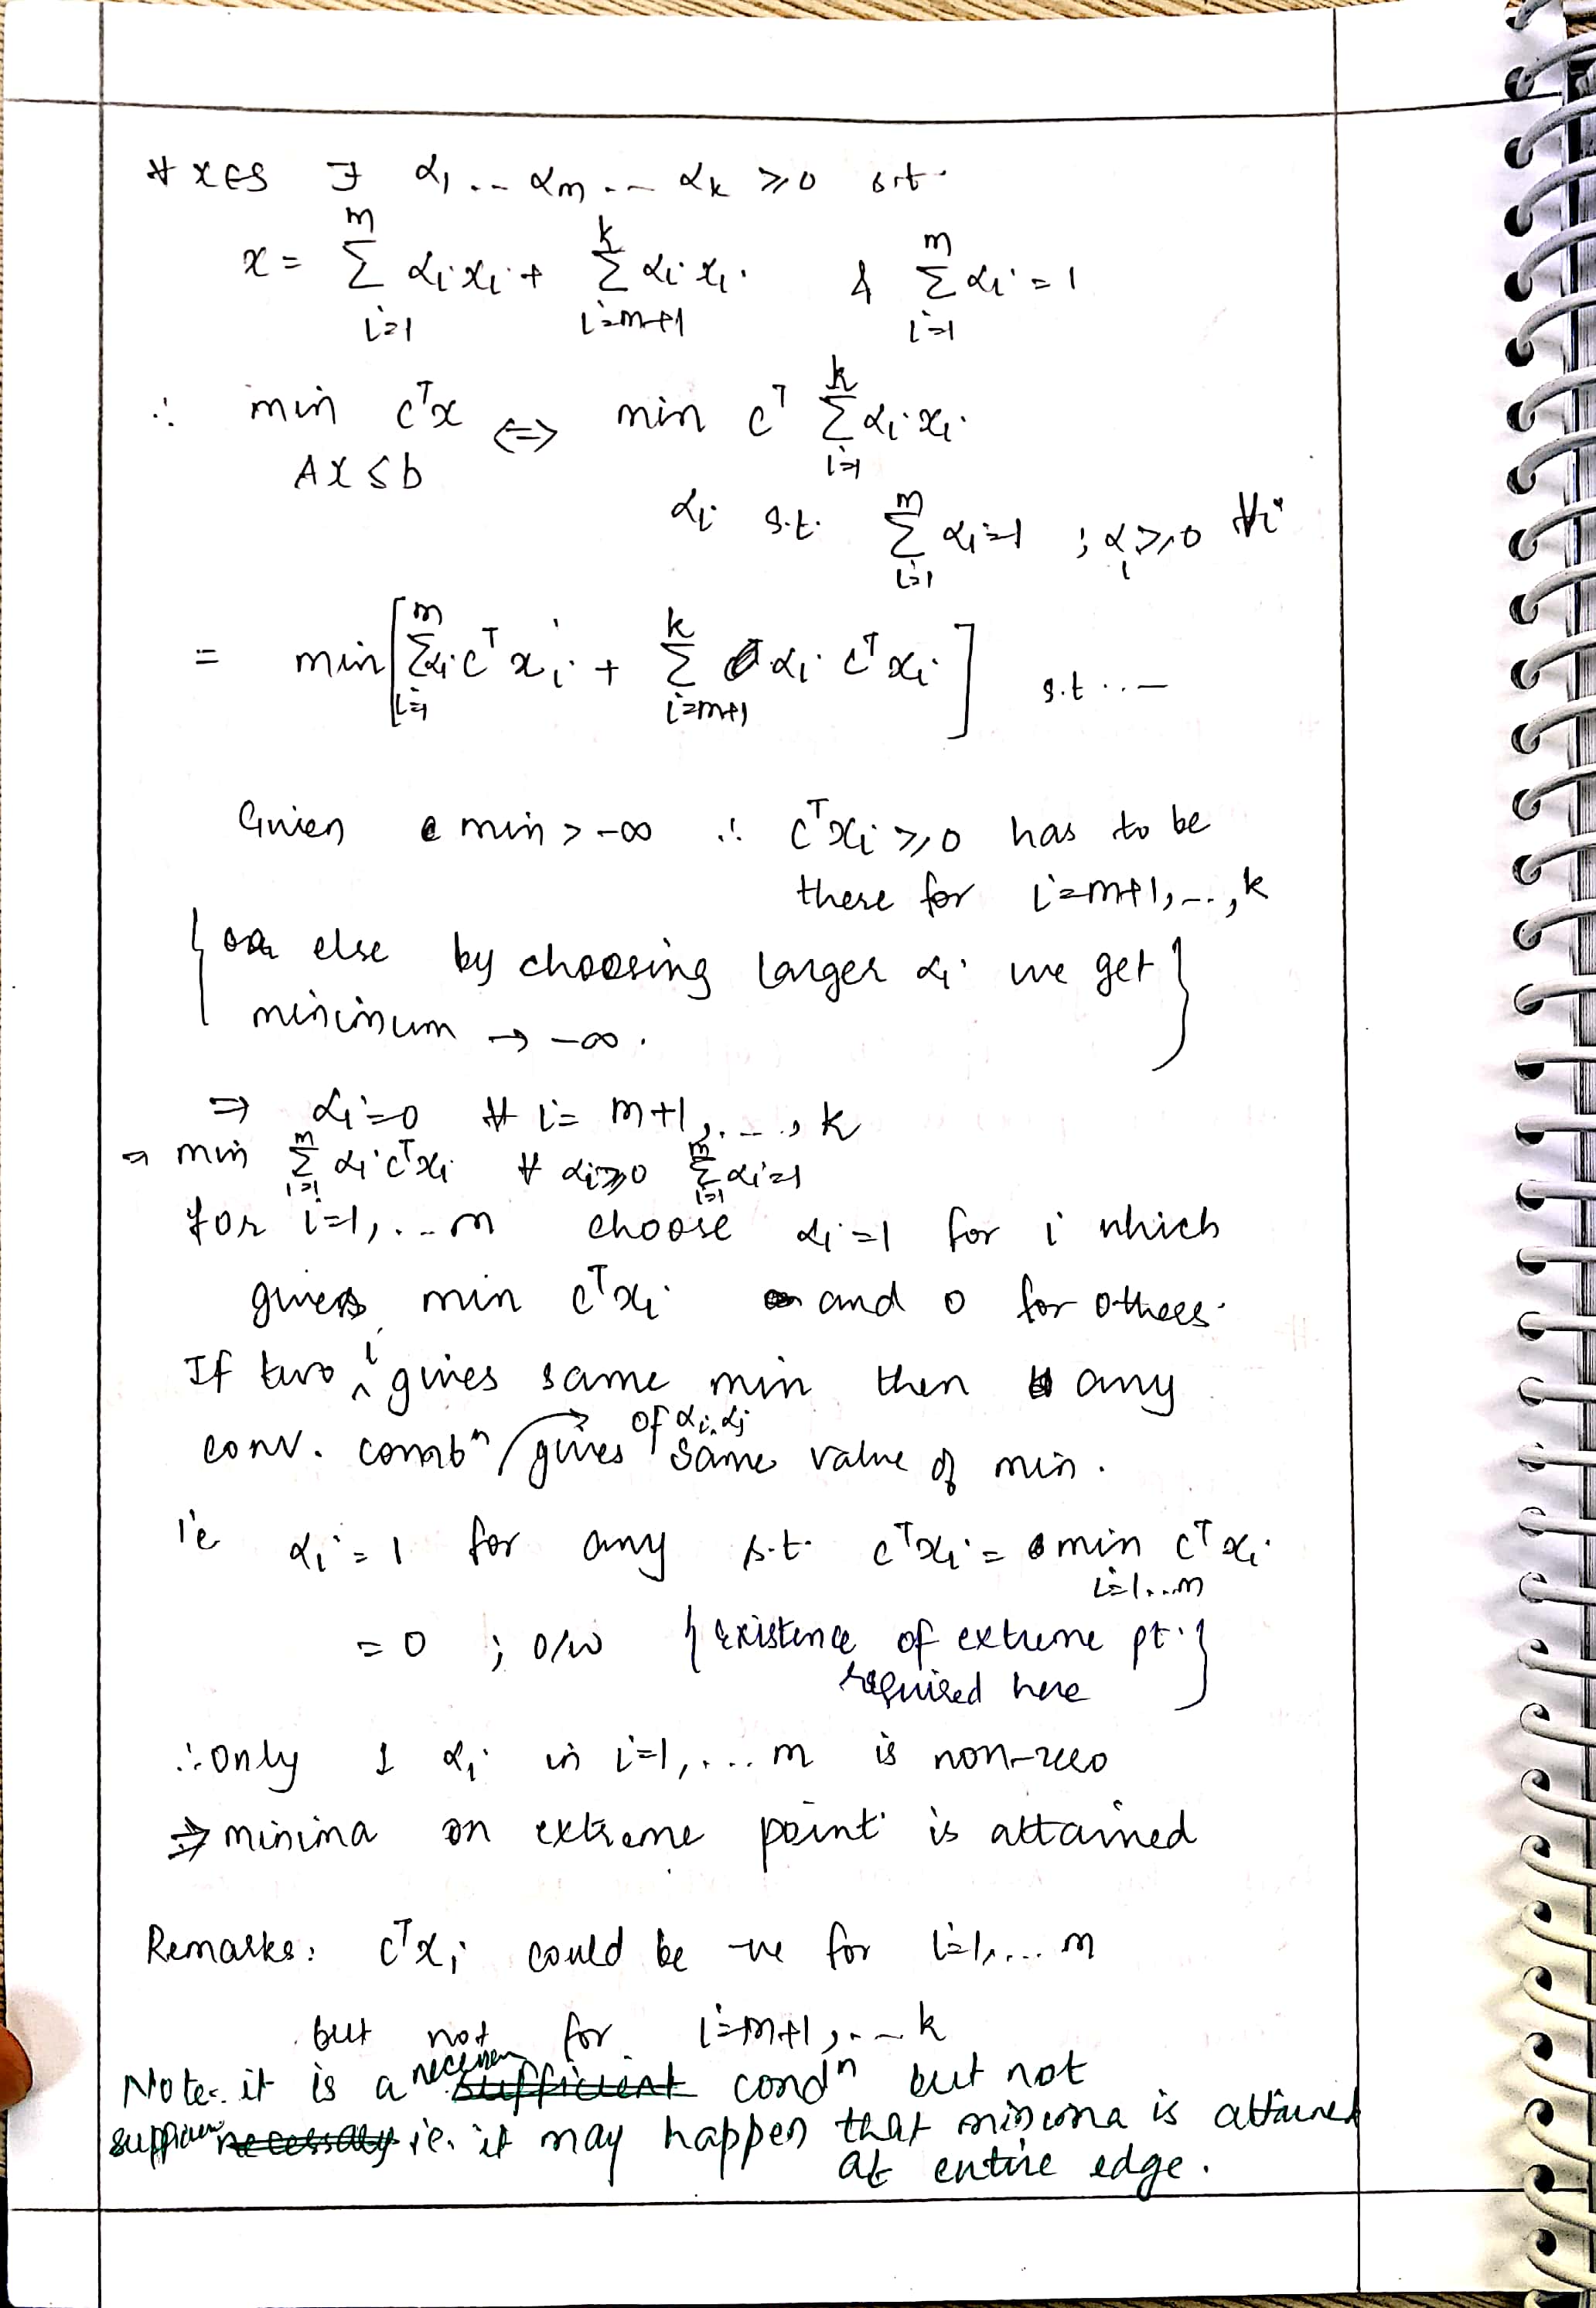 ∀ x∈S ∃ α₁ .. αₘ .. αₖ ≥ 0 s.t.
x = Σ_{i=1}^{m} αᵢxᵢ + Σ_{i=m+1}^{k} αᵢxᵢ & Σ_{i=1}^{m} αᵢ = 1
∴ min cᵀx ⟺ min cᵀ Σ_{i=1}^{k} αᵢxᵢ
Ax ≤ b
αᵢ s.t. Σ_{i=1}^{m} αᵢ=1 ; αᵢ≥0 ∀i
= min [Σ_{i=1}^{m} αᵢcᵀxᵢ + Σ_{i=m+1}^{k} αᵢ cᵀxᵢ] s.t ...
Given min > -∞ ∴ cᵀxᵢ ≥ 0 has to be
there for i=m+1, .., k
{ or else by choosing larger αᵢ we get
minimum → -∞. }
⇒ αᵢ=0 ∀ i= m+1, ..., k
⇒ min Σ_{i=1}^{m} αᵢcᵀxᵢ ∀ αᵢ≥0 Σ_{i=1}^{m} αᵢ=1
for i=1, ... m choose αᵢ=1 for i which
gives min cᵀxᵢ and 0 for others.
If two i gives same min then any
conv. combⁿ of αᵢ, αⱼ gives same value of min.
i.e αᵢ = 1 for any s.t. cᵀxᵢ = min_{i=1...m} cᵀxᵢ
= 0 ; o/w { existence of extreme pt.
required here }
∴ only 1 αᵢ in i=1, ... m is non-zero
⇒ minima on extreme point is attained
Remarks: cᵀxᵢ could be -ve for i=1, ... m
but not for i=m+1, .. k
Note: it is a necessary sufficient condⁿ but not
sufficient necessary i.e. it may happen that minima is attained
at entire edge.